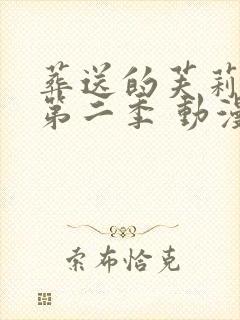 葬送的芙莉
第二季 動漫
索布恰克